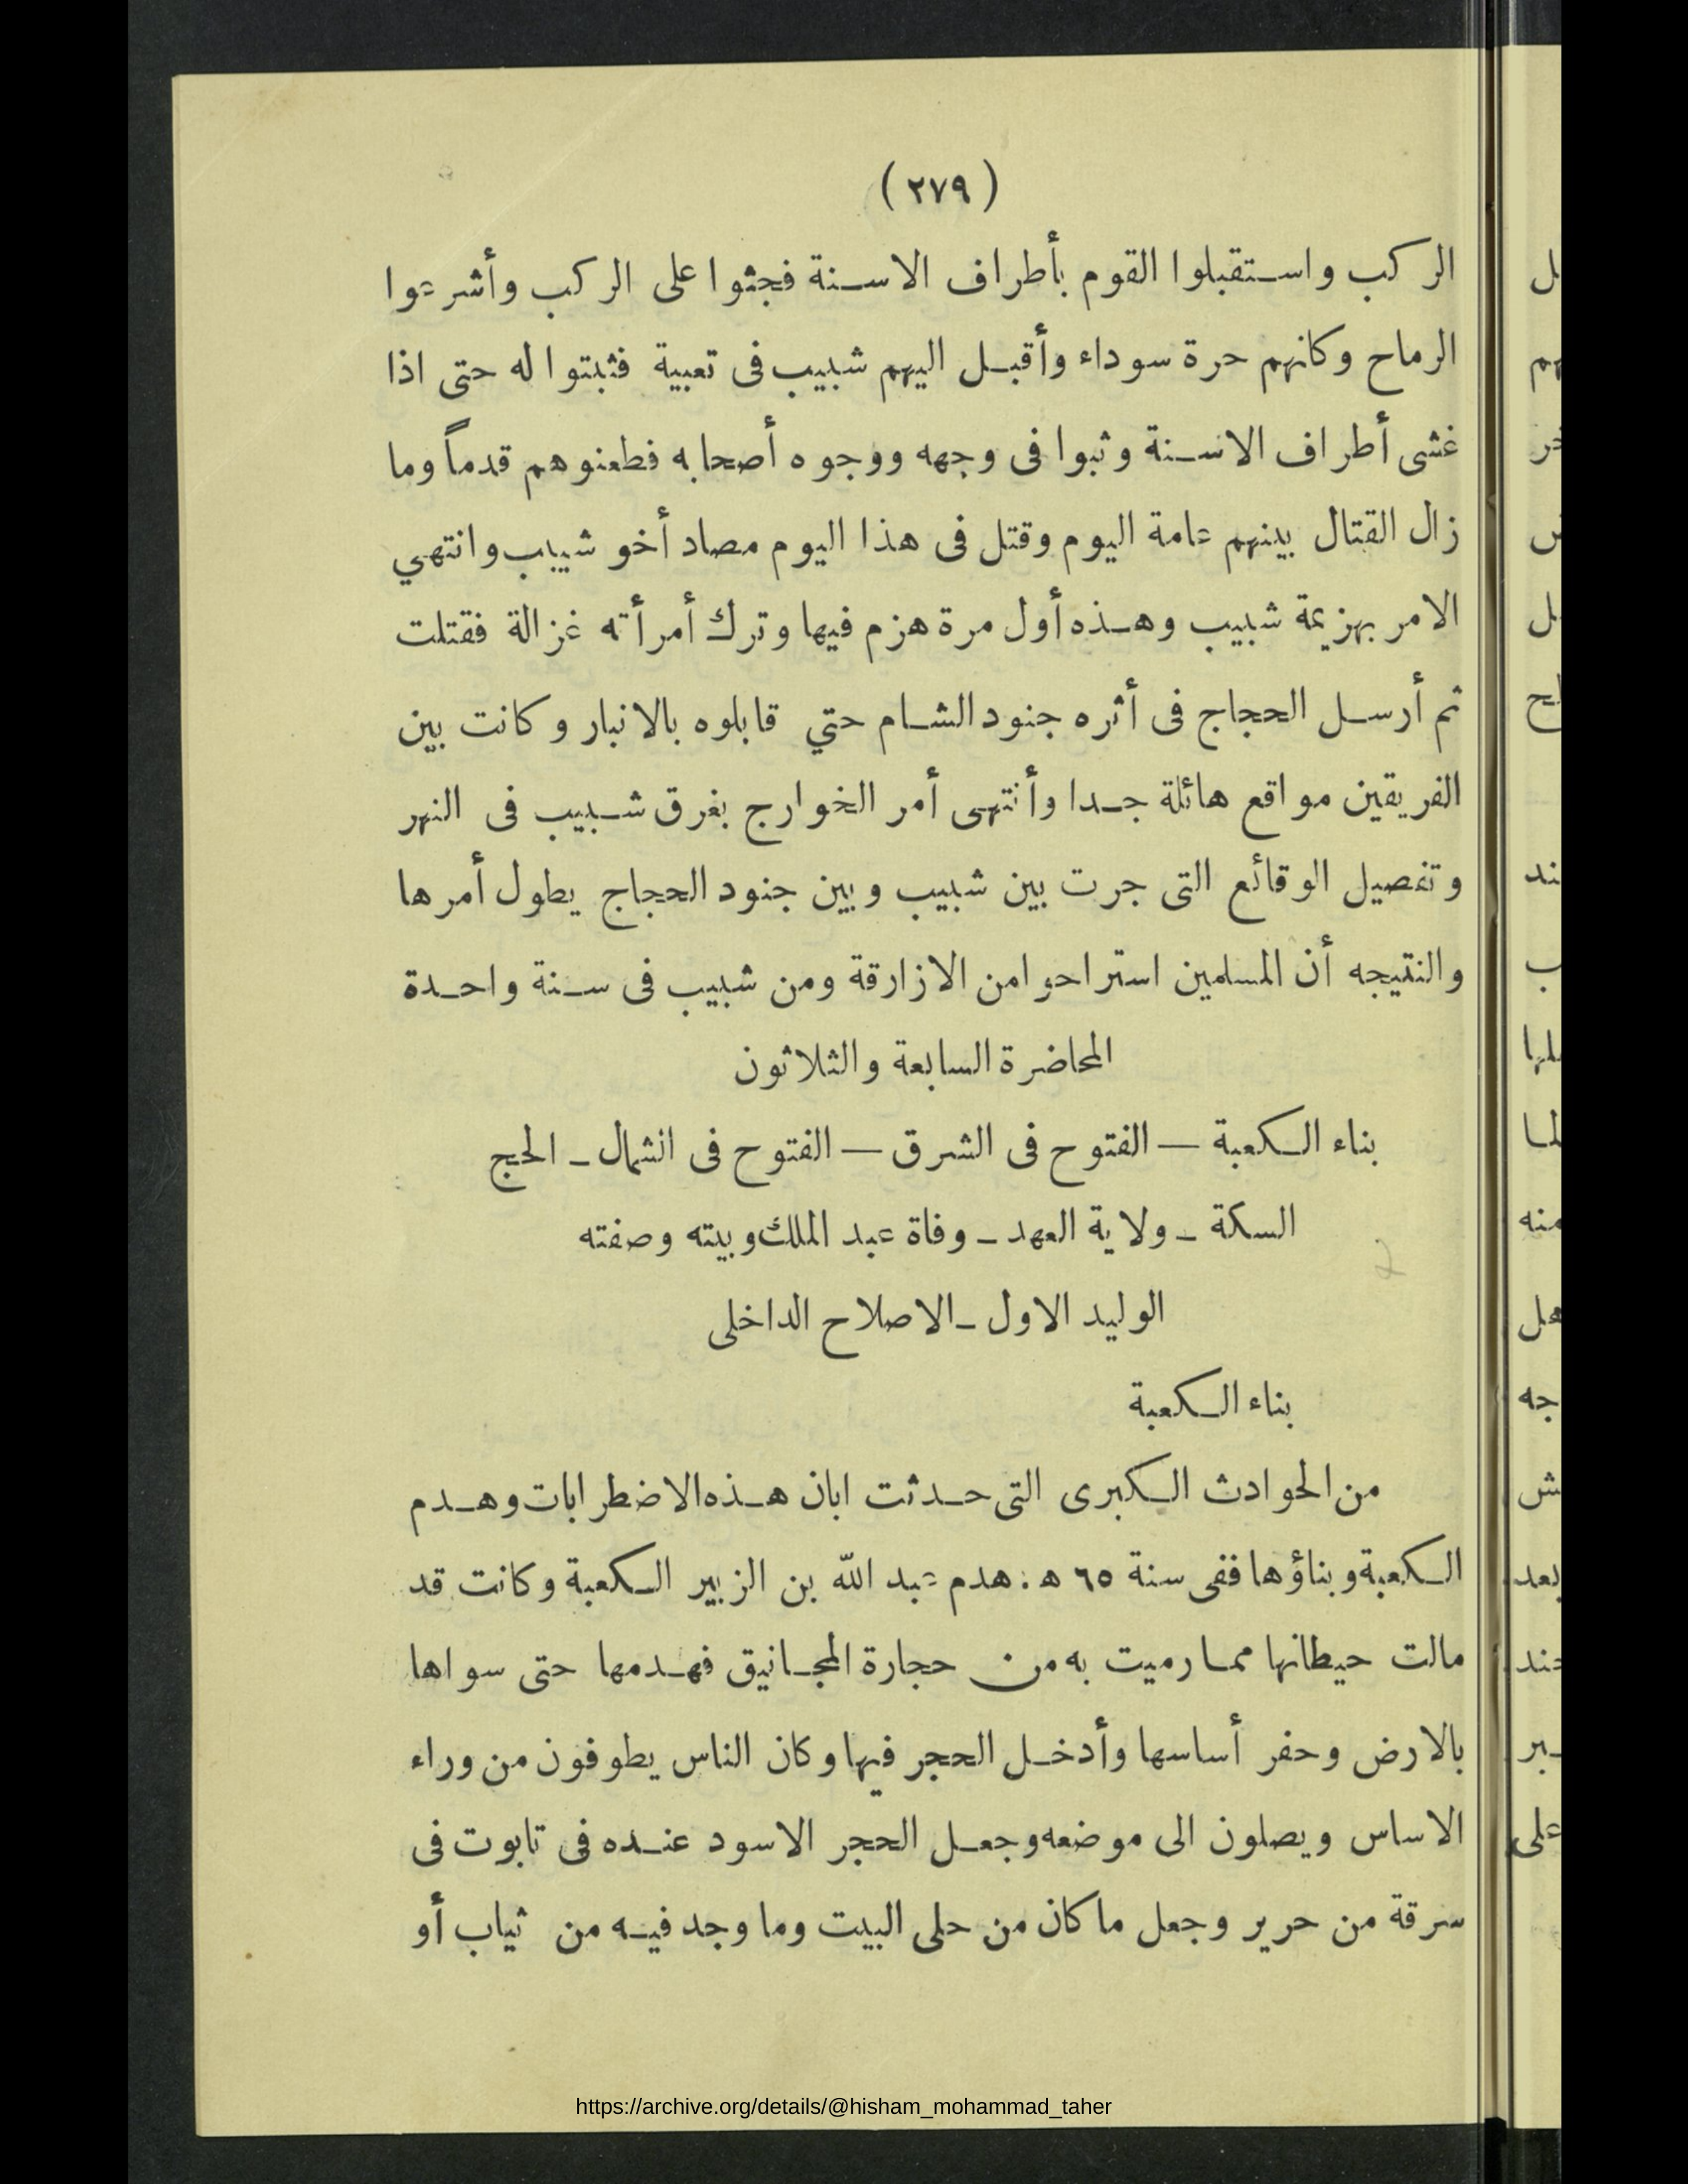 ( ٢٧٩ )
الركب واستقبلوا القوم بأطراف الاسنة فجثوا على الركب وأشرعوا
الرماح وكانهم حرة سوداء وأقبل اليهم شبيب فى تعبية فثبتوا له حتى اذا
غشى أطراف الاسنة وثبوا فى وجهه ووجوه أصحابه فطعنوهم قدماً وما
زال القتال بينهم عامة اليوم وقتل فى هذا اليوم مصاد أخو شبيب وانتهي
الامر بهزيمة شبيب وهذه أول مرة هزم فيها وترك أمرأته غزالة فقتلت
ثم أرسل الحجاج فى أثره جنود الشام حتي قابلوه بالانبار وكانت بين
الفريقين مواقع هائلة جدا وأنتهى أمر الخوارج بغرق شبيب فى النهر
وتفصيل الوقائع التى جرت بين شبيب وبين جنود الحجاج يطول أمرها
والنتيجه أن المسلمين استراحوا من الازارقة ومن شبيب فى سنة واحدة
المحاضرة السابعة والثلاثون
بناء الكعبة — الفتوح فى الشرق — الفتوح فى الشمال - الحج
السكة - ولاية العهد - وفاة عبد الملك وبيته وصفته
الوليد الاول - الاصلاح الداخلى
بناء الكعبة
من الحوادث الكبرى التى حدثت ابان هذه الاضطرابات وهدم
الكعبة وبناؤها ففى سنة ٦٥ ه : هدم عبد الله بن الزبير الكعبة وكانت قد
مالت حيطانها مما رميت به من حجارة المجانيق فهدمها حتى سواها
بالارض وحفر أساسها وأدخل الحجر فيها وكان الناس يطوفون من وراء
الاساس ويصلون الى موضعه وجعل الحجر الاسود عنده فى تابوت فى
سرقة من حرير وجعل ما كان من حلى البيت وما وجد فيه من ثياب أو
https://archive.org/details/@hisham_mohammad_taher